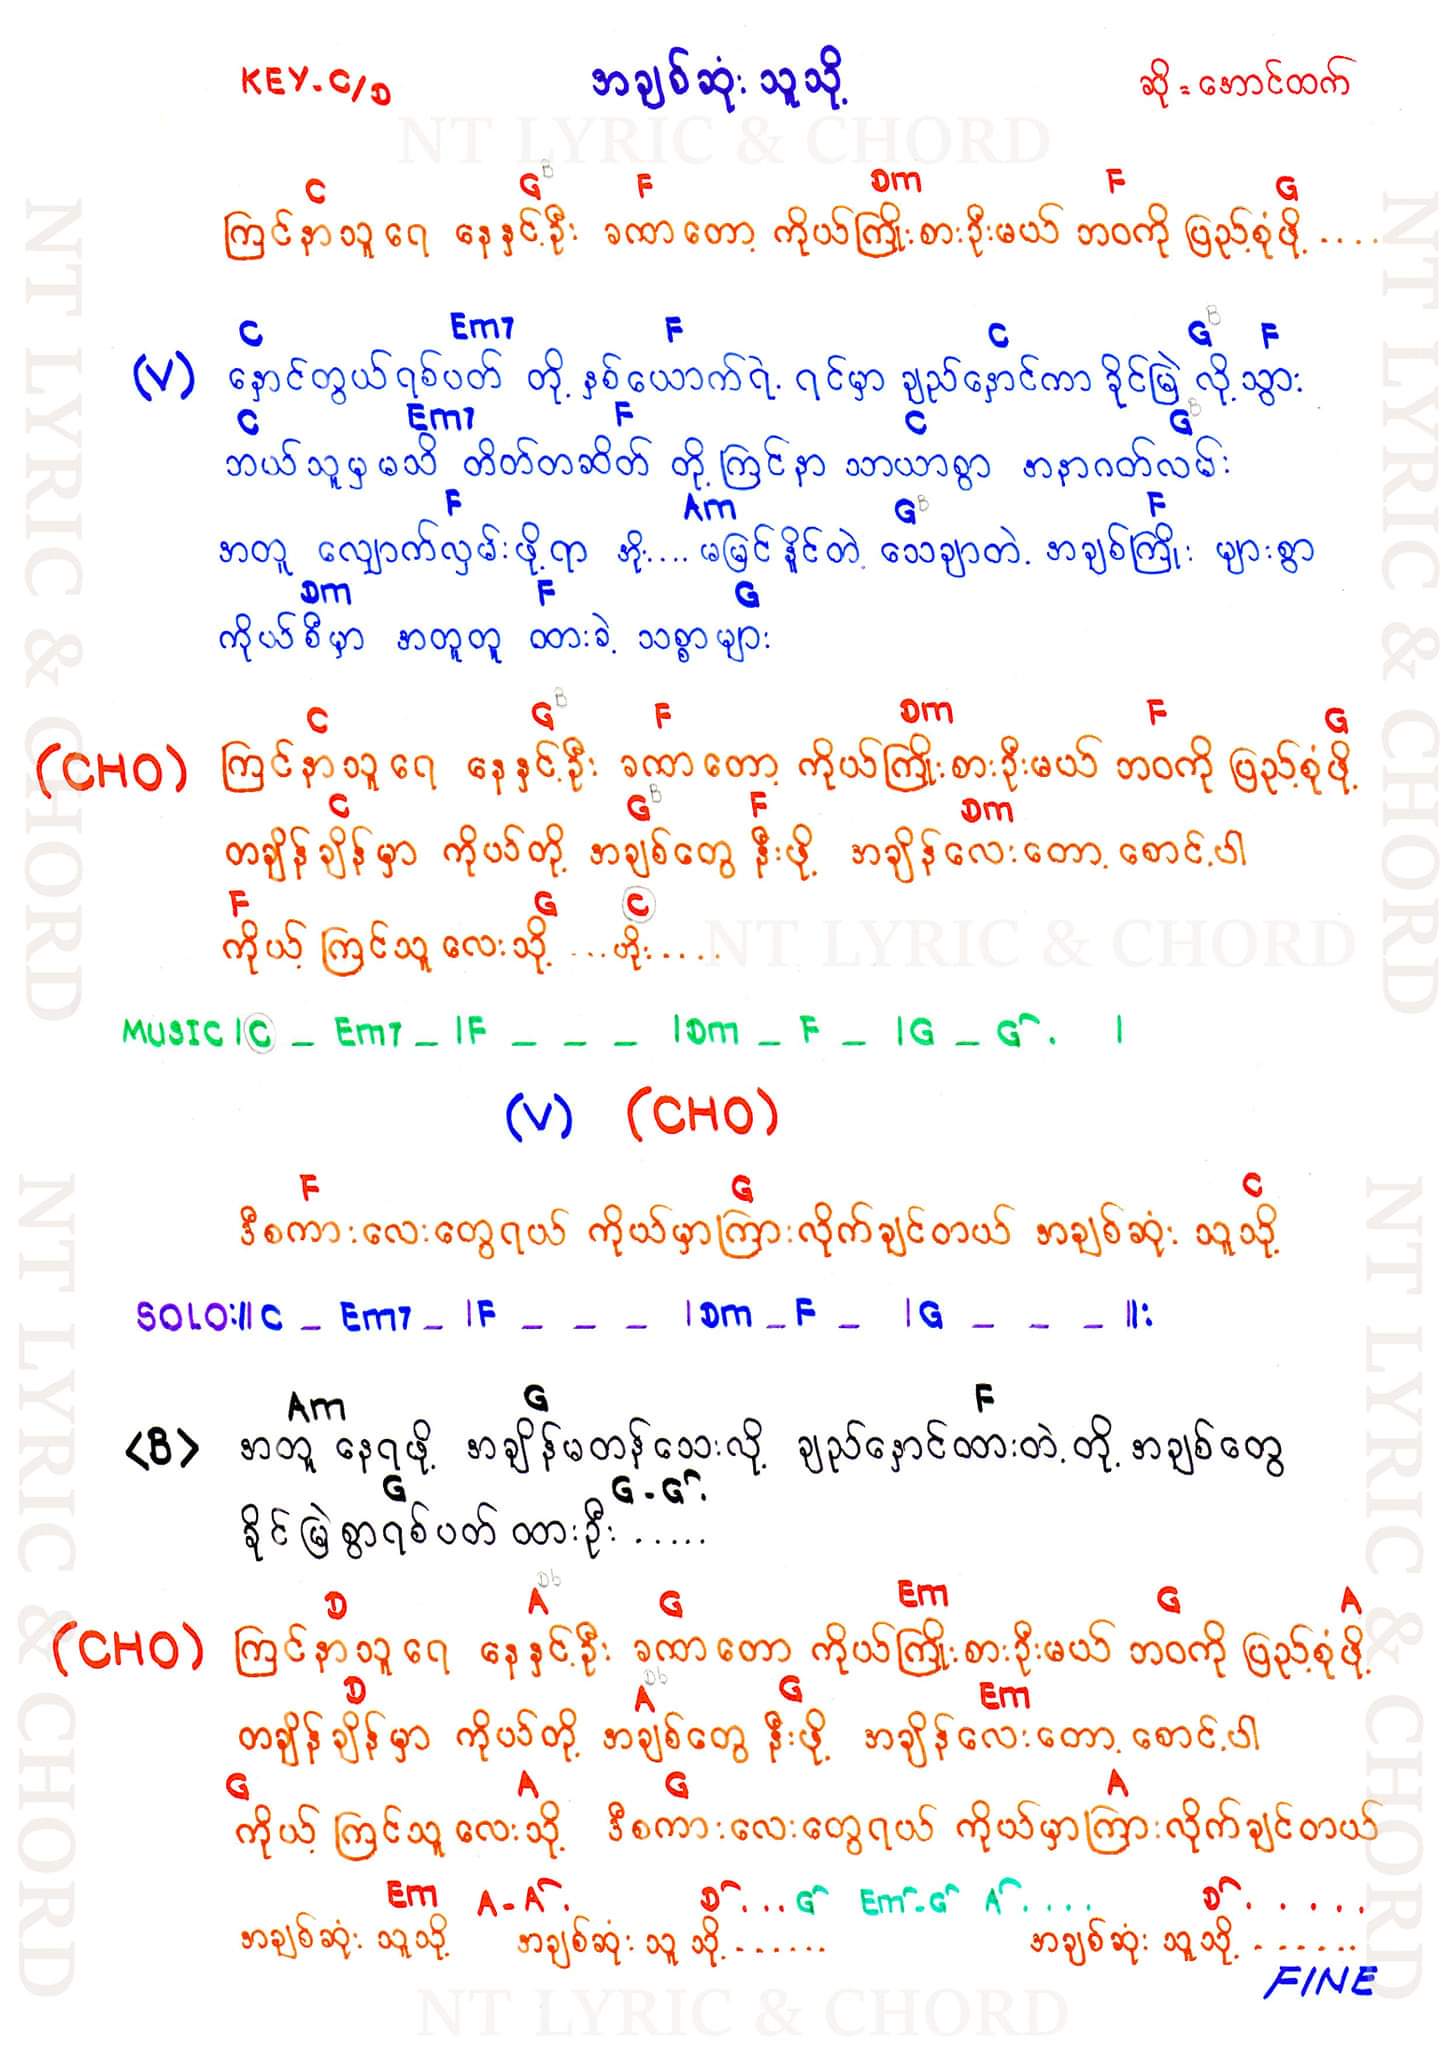 KEY-C/D အချစ်ဆုံးသူသို့ ဆို = အောင်ထက်
NT LYRIC & CHORD
C G B F Dm F G
ကြင်နာသူရေ နေနှင့်ဦး ခဏတော့ ကိုယ်ကြိုးစားဦးမယ် ဘဝကို ပြည့်စုံဖို့ ....
C Em7 F C G B F
(V) နှောင်တွယ်ရစ်ပတ် တို့ နှစ်ယောက်ရဲ့ ရင်မှာ ချည်နှောင်ကာ ခိုင်မြဲ လို့ သွား
C Em7 F C G B
ဘယ်သူမှမသိ တိတ်တဆိတ် တို့ ကြင်နာ သာယာစွာ အနာဂတ်လမ်း
F Am G B F
အတူ လျှောက်လှမ်းဖို့ရာ အိုး.... မမြင်နိုင်တဲ့ သေချာတဲ့ အချစ်ကြိုး များစွာ
Dm F G
ကိုယ်စီမှာ အတူတူ ထားခဲ့ သစ္စာများ
C G B F Dm F G
(CHO) ကြင်နာသူရေ နေနှင့်ဦး ခဏတော့ ကိုယ်ကြိုးစားဦးမယ် ဘဝကို ပြည့်စုံဖို့
C G B F Dm
တချိန်ချိန်မှာ ကိုယ်တို့ အချစ်တွေ နီးဖို့ အချိန်လေးတော့ စောင့်ပါ
F G C
ကိုယ့် ကြင်သူ လေးသို့ ...ဟိုး.....
NT LYRIC & CHORD
MUSIC | C _ Em7 _ | F _ _ _ | Dm _ F _ | G _ G . |
(V) (CHO)
F G C
ဒီစကားလေးတွေရယ် ကိုယ်မှာကြားလိုက်ချင်တယ် အချစ်ဆုံး သူသို့
SOLO:|| C _ Em7 _ | F _ _ _ | Dm _ F _ | G _ _ _ ||:
Am G F
<B> အတူ နေရဖို့ အချိန်မတန်သေးလို့ ချည်နှောင်ထားတဲ့ တို့ အချစ်တွေ
G G - G .
ခိုင်မြဲစွာရစ်ပတ် ထားဦး .....
D A Db G Em G A
(CHO) ကြင်နာသူရေ နေနှင့်ဦး ခဏတော ကိုယ်ကြိုးစားဦးမယ် ဘဝကို ပြည့်စုံဖို့
D A Db G Em
တချိန်ချိန်မှာ ကိုယ်တို့ အချစ်တွေ နီးဖို့ အချိန်လေးတော့ စောင့်ပါ
G A G A
ကိုယ့် ကြင်သူ လေးသို့ ဒီစကားလေးတွေရယ် ကိုယ်မှာကြားလိုက်ချင်တယ်
Em A - A . D ... G Em - G A .... D ......
အချစ်ဆုံး သူသို့ အချစ်ဆုံး သူ သို့ ....... အချစ်ဆုံး သူသို့ .......
FINE
NT LYRIC & CHORD
NT LYRIC & CHORD
NT LYRIC & CHORD
NT LYRIC & CHORD
NT LYRIC & CHORD